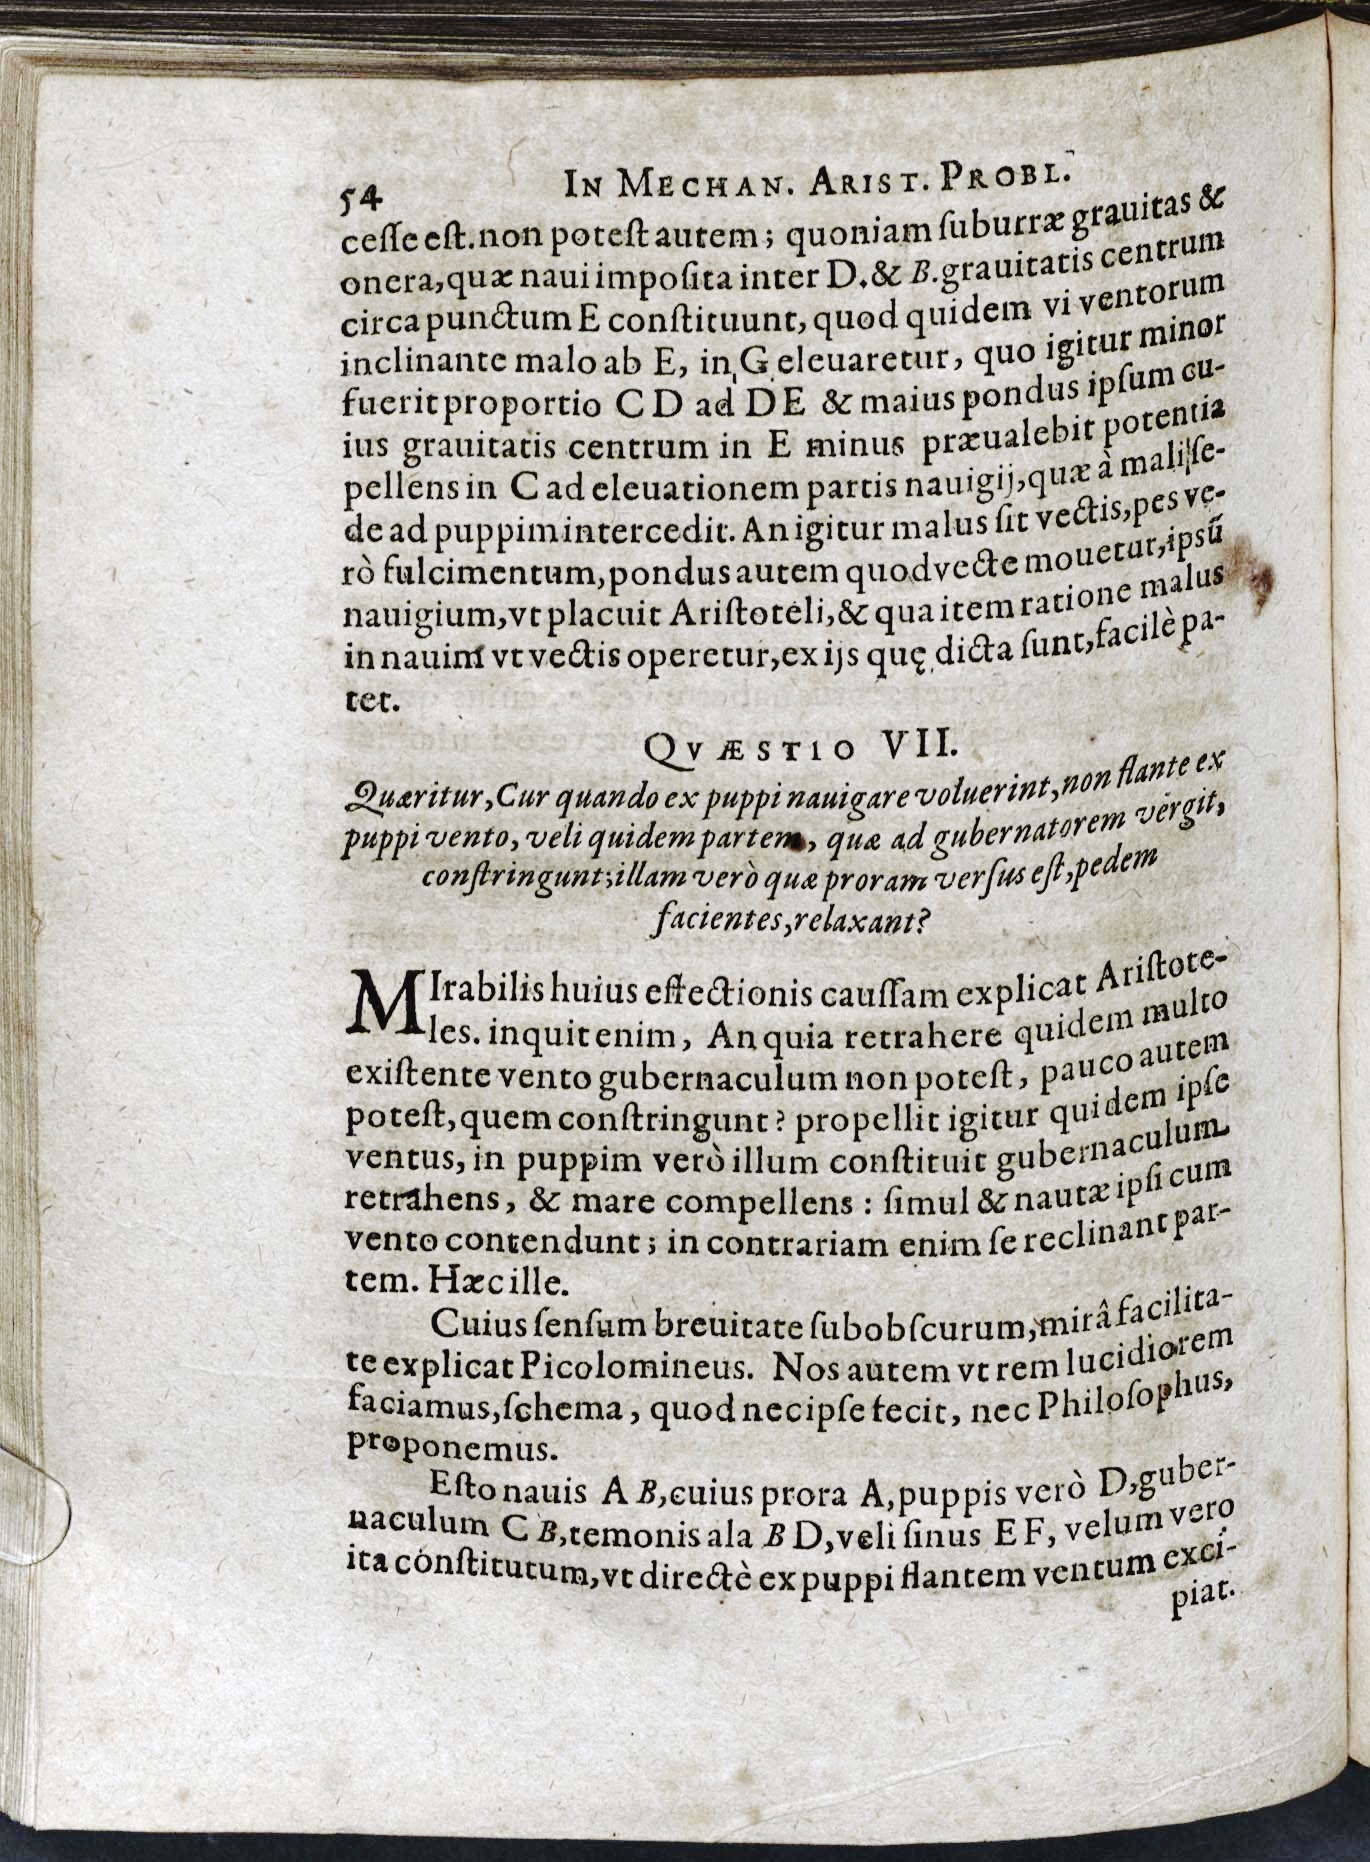 54 IN MECHAN. ARIST. PROBL.
ceſſe eſt. non poteſt autem; quoniam ſuburræ grauitas &
onera, quæ naui impoſita inter D. & B. grauitatis centrum
circa punctum E conſtituunt, quod quidem vi ventorum
inclinante malo ab E, in G eleuaretur, quo igitur minor
fuerit proportio C D ad D E & maius pondus ipſum cu-
ius grauitatis centrum in E minus præualebit potentia
pellens in C ad eleuationem partis nauigij, quæ à mali ſe-
de ad puppim intercedit. An igitur malus ſit vectis, pes ve-
rò fulcimentum, pondus autem quod vecte mouetur, ipsũ
nauigium, vt placuit Ariſtoteli, & qua item ratione malus
in nauim vt vectis operetur, ex ijs quę dicta ſunt, facilè pa-
tet.
QVÆSTIO VII.
Quæritur, Cur quando ex puppi nauigare voluerint, non flante ex
puppi vento, veli quidem partem, quæ ad gubernatorem vergit,
conſtringunt; illam verò quæ proram verſus eſt, pedem
facientes, relaxant?
MIrabilis huius effectionis cauſſam explicat Ariſtote-
les. inquit enim, An quia retrahere quidem multo
exiſtente vento gubernaculum non poteſt, pauco autem
poteſt, quem conſtringunt? propellit igitur quidem ipſe
ventus, in puppim verò illum conſtituit gubernaculum
retrahens, & mare compellens: ſimul & nautæ ipſi cum
vento contendunt; in contrariam enim ſe reclinant par-
tem. Hæc ille.
Cuius ſenſum breuitate ſubobſcurum, mirâ facilita-
te explicat Picolomineus. Nos autem vt rem lucidiorem
faciamus, ſchema, quod nec ipſe fecit, nec Philoſophus,
proponemus.
Eſto nauis A B, cuius prora A, puppis verò D, guber-
naculum C B, temonis ala B D, veli ſinus E F, velum vero
ita conſtitutum, vt directè ex puppi flantem ventum exci-
piat.